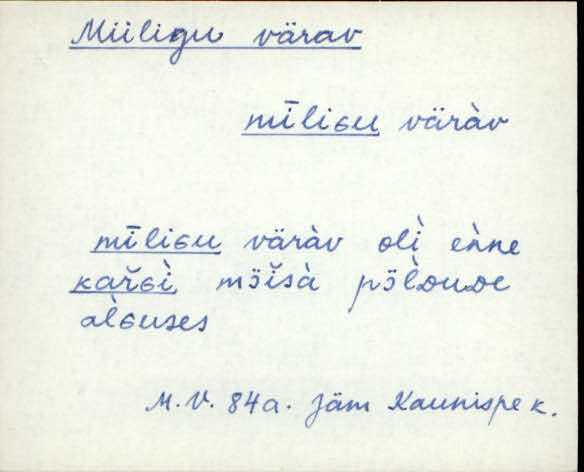 Miiligu värav
mīliɢu väràv
mīliɢu väràv olì eǹne
kařɢì mɜ̈ĭsà pɜ̈l̀ᴅuᴅe
al̀ɢuses
M.V. 84a. Jäm Kaunispe k.